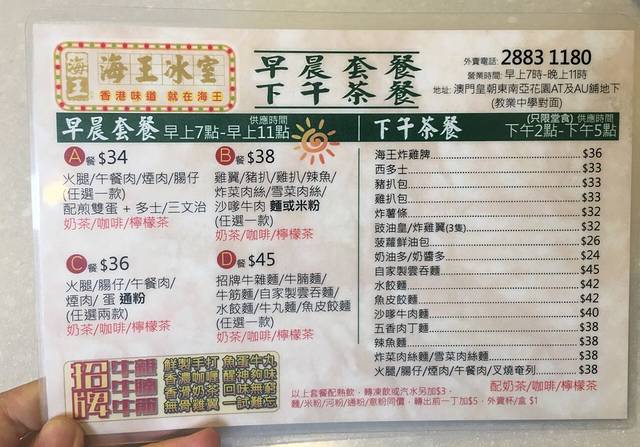 海王
海王冰室
香港味道 就在海王
早晨套餐
下午茶餐
外賣電話: 2883 1180
營業時間: 早上7時-晚上11時
地址: 澳門皇朝東南亞花園AT及AU舖地下
(教業中學對面)
早晨套餐 供應時間 早上7點-早上11點
A餐 $34
火腿/午餐肉/煙肉/腸仔
(任選一款)
配煎雙蛋 + 多士/三文治
奶茶/咖啡/檸檬茶
B餐 $38
雞翼/豬扒/雞扒/辣魚/
炸菜肉絲/雪菜肉絲/
沙嗲牛肉 麵或米粉
(任選一款)
奶茶/咖啡/檸檬茶
C餐 $36
火腿/腸仔/午餐肉/
煙肉/ 蛋 通粉
(任選兩款)
奶茶/咖啡/檸檬茶
D餐 $45
招牌牛雜麵/牛腩麵/
牛筋麵/自家製雲吞麵/
水餃麵/牛丸麵/魚皮餃麵
(任選一款)
奶茶/咖啡/檸檬茶
下午茶餐 (只限堂食) 供應時間 下午2點-下午5點
海王炸雞脾 $36
西多士 $33
豬扒包 $33
雞扒包 $33
炸薯條 $32
豉油皇/炸雞翼(3隻) $32
菠蘿鮮油包 $26
奶油多/奶醬多 $24
自家製雲吞麵 $45
水餃麵 $42
魚皮餃麵 $42
沙嗲牛肉麵 $40
五香肉丁麵 $38
辣魚麵 $38
炸菜肉絲麵/雪菜肉絲麵 $38
火腿/腸仔/煙肉/午餐肉/叉燒奄列 $38
配奶茶/咖啡/檸檬茶
招牌
牛腩
鮮製手打 魚蛋牛丸
香濃咖喱 醒神夠味
香滑奶茶 回味無窮
無骨雞翼 一試難忘
以上套餐配熱飲，轉凍飲或汽水另加$3，
麵/米粉/河粉/通粉/意粉同價，轉出前一丁加$5，外賣杯/盒 $1